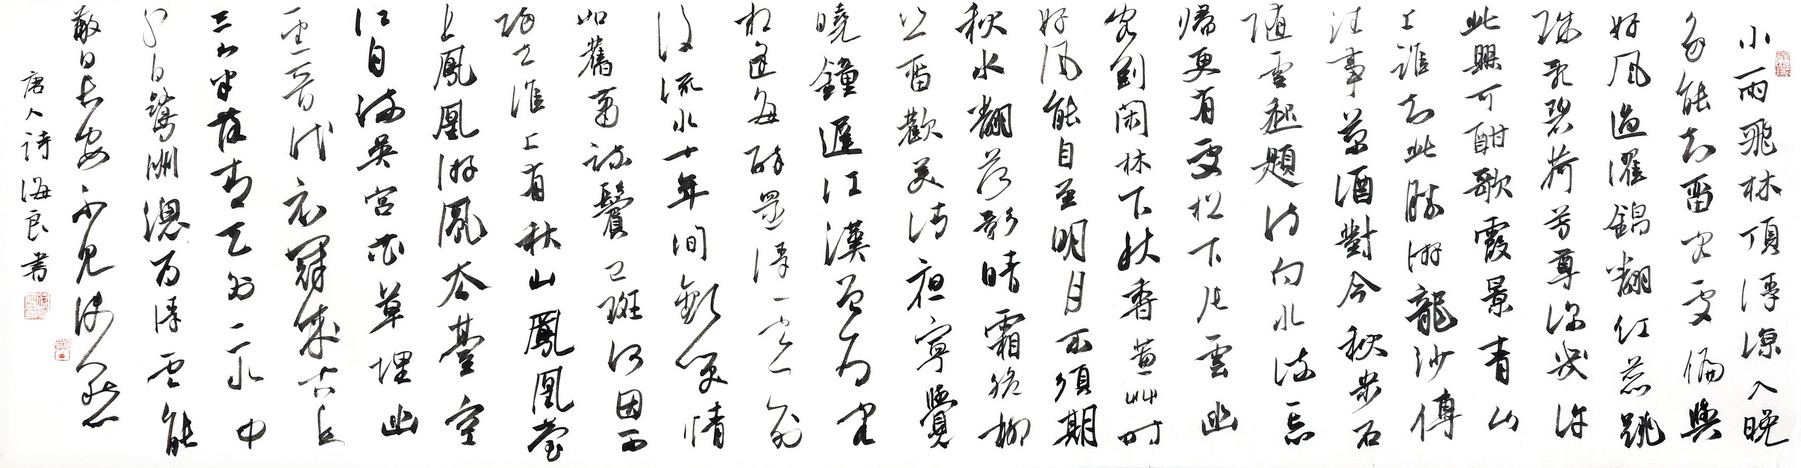 小雨飛林頂浮涼入晚
多能知留客處偏與
好風過濯錦翻紅蕊跳
珠亂碧荷芳尊深幾許
此興可酣歌霞景青山
上誰知此勝游龍沙傳
往事菊酒對今秋步石
隨雲起題詩向水流忘
歸更有處松下片雲幽
客到閑林下秋香蕙草時
好風能自至明月不須期
秋水翻荷影晴霜脆柳
枝留歡美清夜寧覺
曉鐘遲江漢曾為客
相逢每醉還浮雲一別
後流水十年間歡笑情
如舊蕭疏鬢已斑何因不
歸去淮上有秋山鳳凰臺
上鳳凰游鳳去臺空
江自流吳宮花草埋幽
徑晉代衣冠成古丘
三山半落青天外二水中
分白鷺洲總為浮雲能
蔽日長安不見使人愁
唐人詩海良書